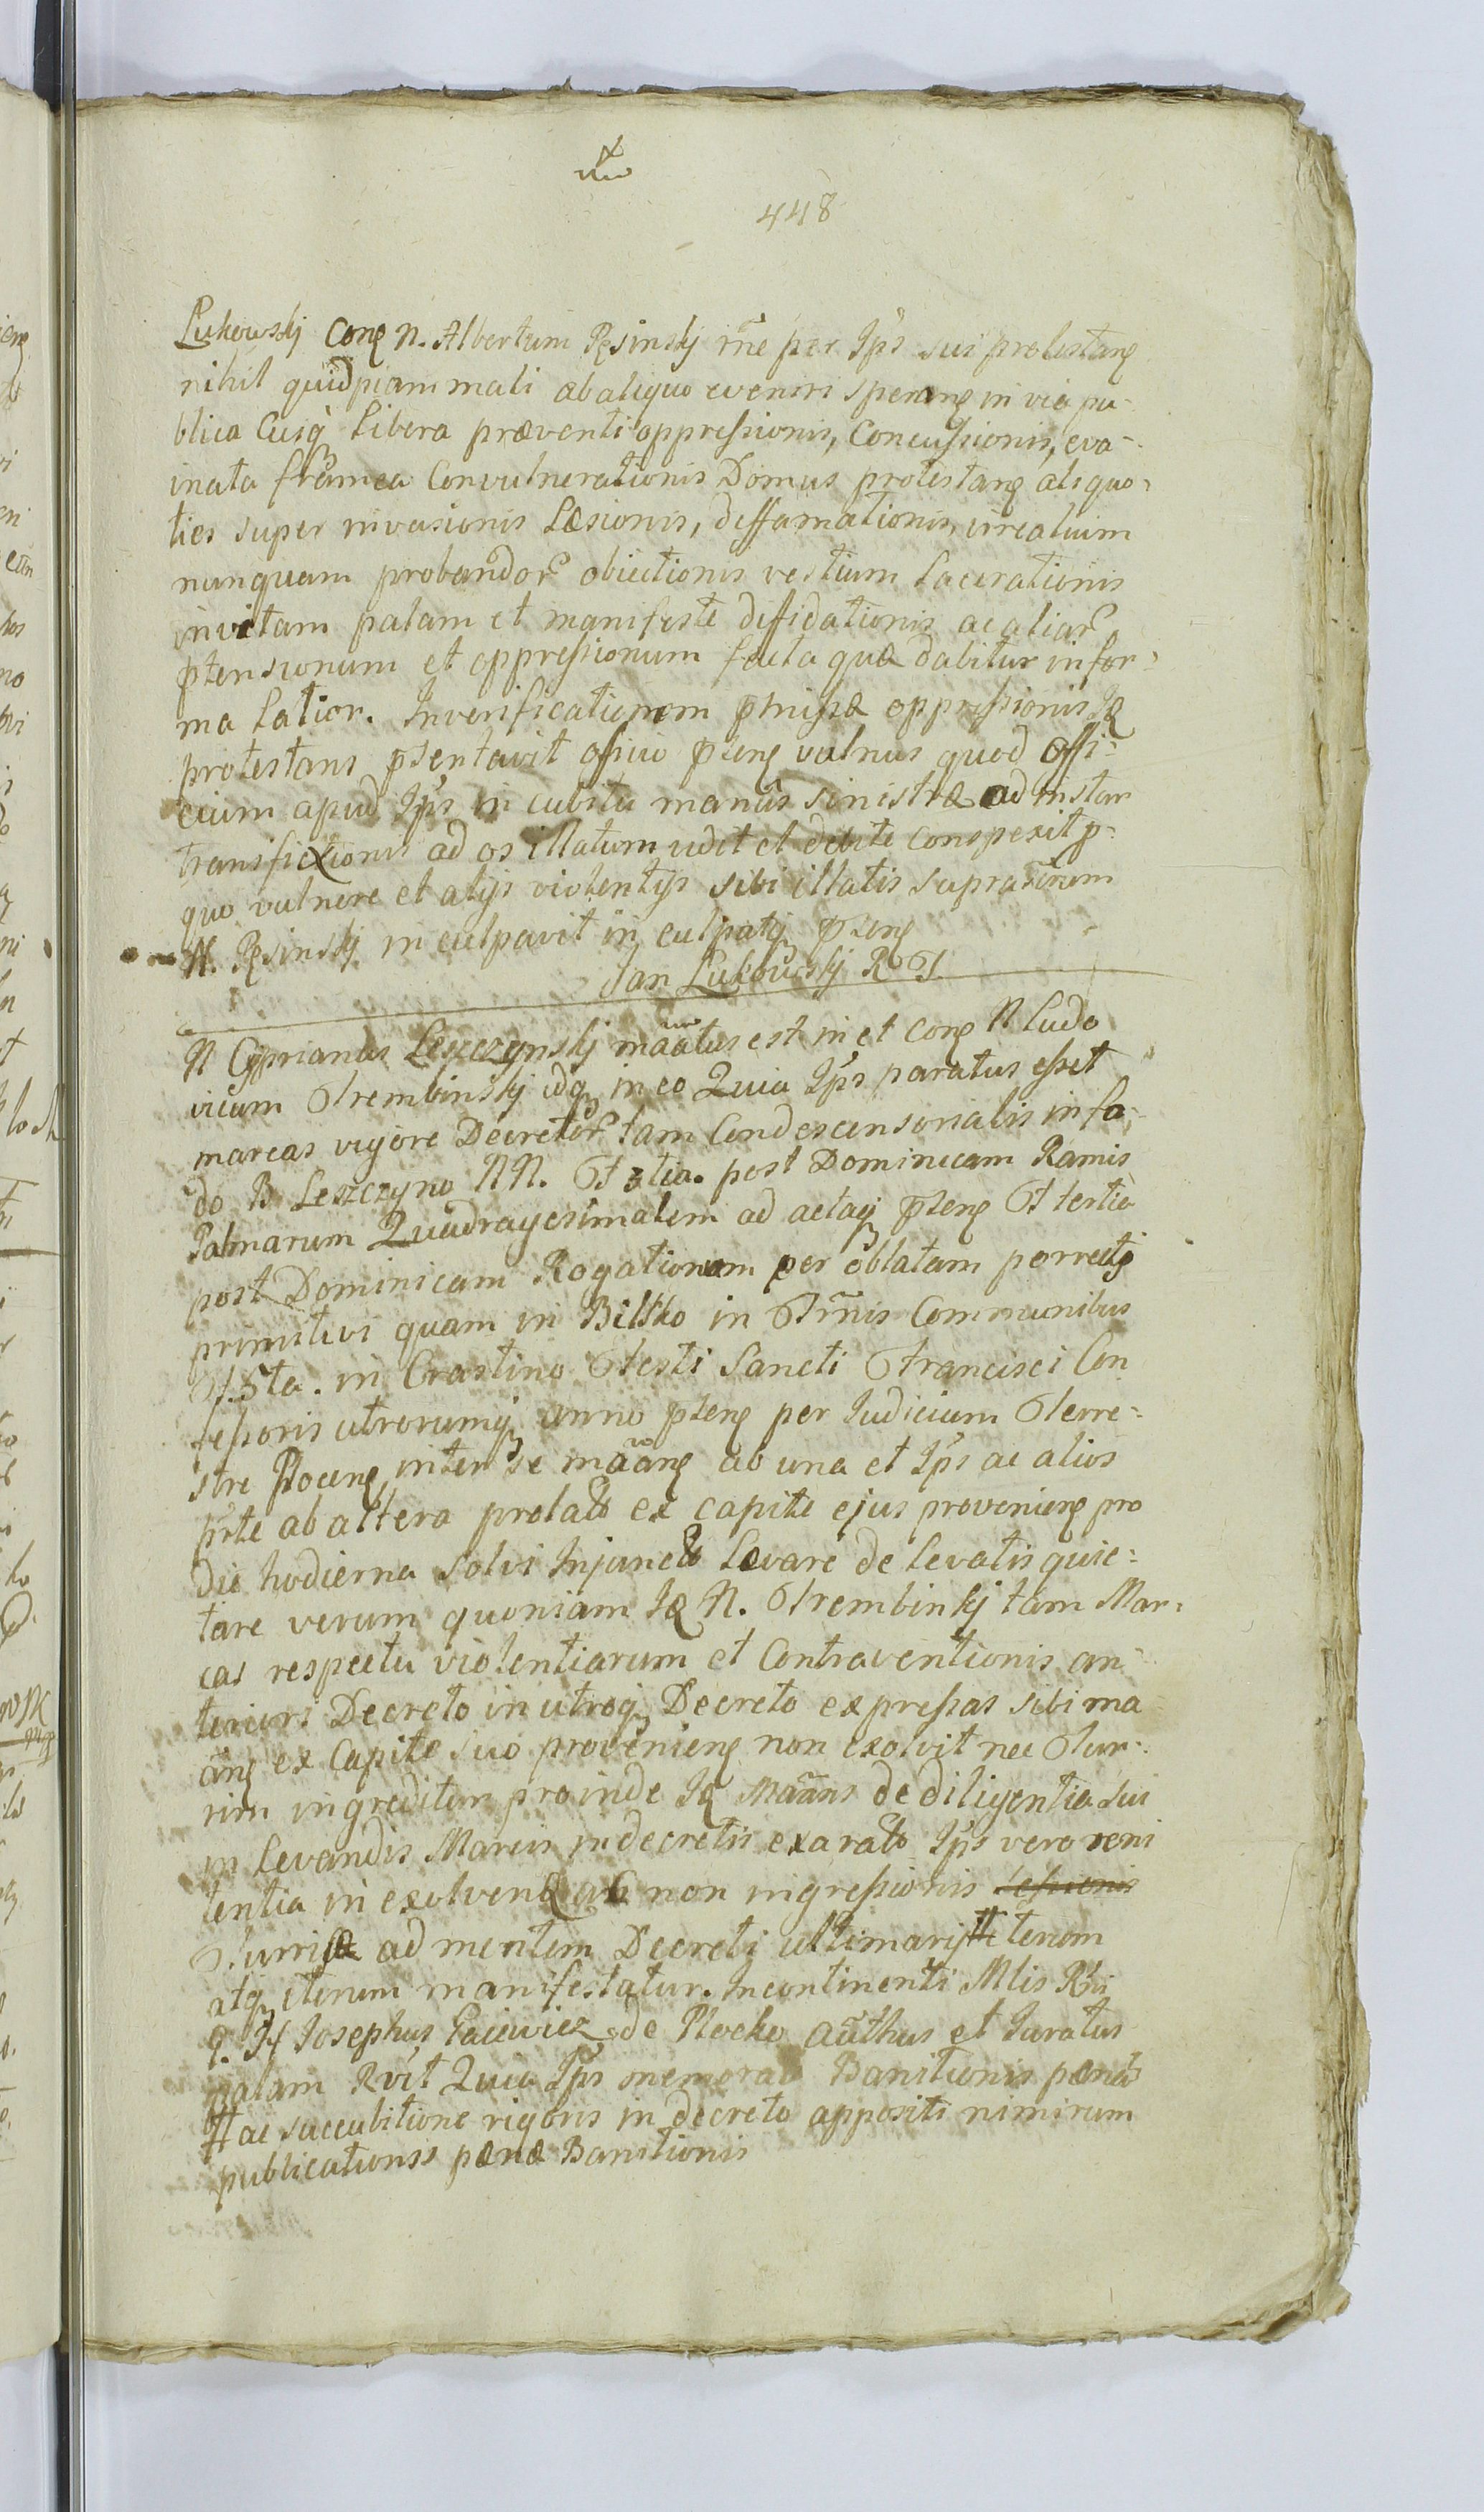 448
Lukowskj Conȩ N. Albertum Ręsinskj rñe per Ip̃s sui protestanȩ
nihil quidpiam mali ab aliquo eveniri speranȩ in via pu-
blica Cuiq̃ libera præventi oppressionis, Concussionis, eva-
inata framea Convulnerationis Domus protestanȩ aliquo-
ties super invasionis Læsionis, diffamationis, irreatuum
nunquam probandor̃ obiectionis vestium Lacerationis
in vitam palam et manifeste diffidationis ac aliar̃
p̃tensionum et oppressionum facta quæ dabitur in for-
ma latior. In verificationem p̃missæ oppressionis Iȩ
protestans p̃sentavit officio p̃senȩ vulnus quod offi-
cium apud Ip̃s in cubitu manus sinistræ ad instar
transfixionis ad os illatum vidit et debite conspexit p-
quo vulnere et alijs violentijs sibi illatis supra
N. Ręsinskj inculpavit in culpatq̃ p̃senȩ
Jan Lukowskj R P
N Cyprianus Leszczynskj mãatus est in et conȩ N Ludo
vicum Trembinskj idq̃ in eo Quia Ip̃s paratus esset
marcas vigore Decretor̃ tam Condescensorialis in fo
do B Leszczyno NN. F 3tia. post Dominicam Ramis
Palmarum Quadragesimalem ad actaq̃ p̃senȩ F tertia
post Dominicam Rogationum per oblatam porrecti
primitivi quam in Bilsko in Trm̃is Communibus
F. 5ta. in Crastino Festi Sancti Francisci Con
fessoris utrorumq̃ anno p̃senȩ per Judicium Terre-
stre Plocenȩ inter se mãanȩ ab una et Ip̃s ac alios
p̃rte ab altera prolatõ ex capite ejus provenienȩ pro
die hodierna solvi Injunctõ Levare de levatis quie-
tare verum quoniam Iȩ N. Trembinskj tam Mar-
cas respectu violentiarum et Contraventionis an-
teriori Decreto in utroq̃ Decreto expressas sibi ma
anȩ ex Capite suo provenienȩ non exolvit nec Tur-
rim ingreditem proinde Iȩ Mãans de diligentia sui
in levandis Marcis in decretis exaratõ Ip̃s vero reni
tentia in exolvenȩ ac non ingressionis
Turris ad mentem Decreti ultimarij # iterum
atq̃ iterum manifestatur. Incontinenti Mlis Rñi
g. H Josephus Paciewicz de Plocko aũthus et Juratus
palam Rvit Quia Ip̃s memoratõ Banitionis pœnas
# ac succubitione rigoris in decreto appositi nimirum
publicationis pœnæ Banitionis